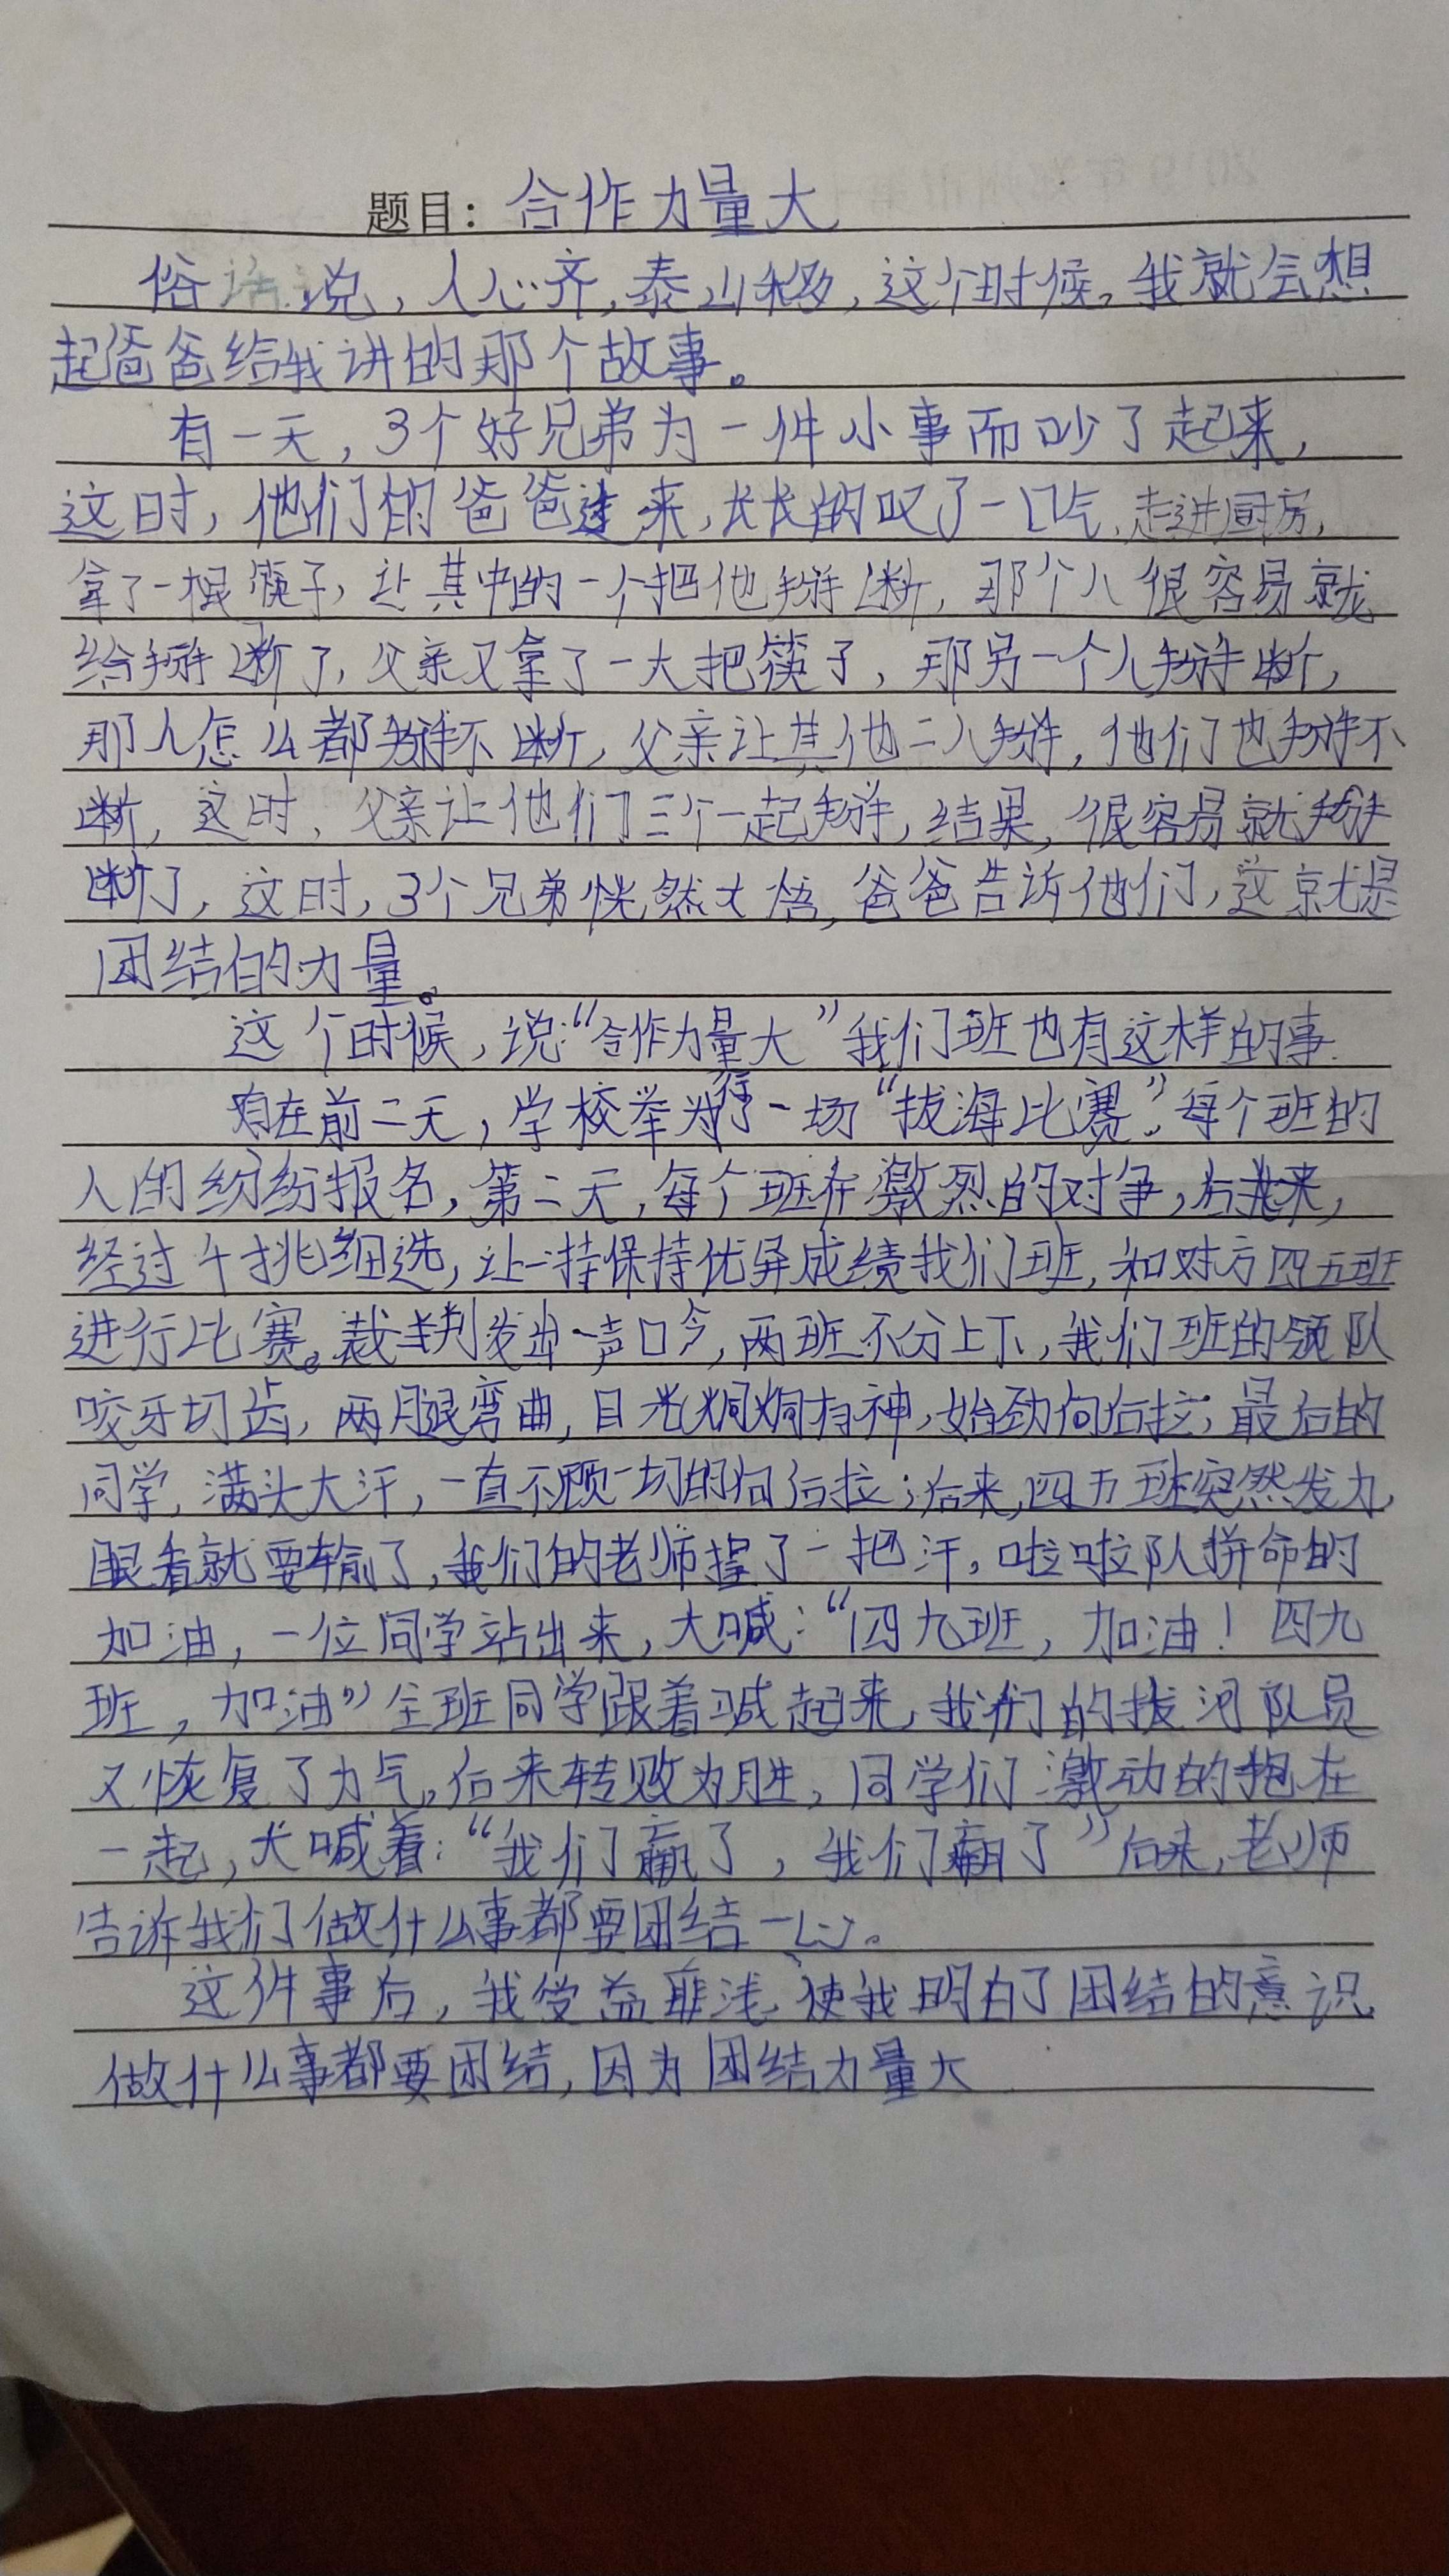 题目：合作力量大
俗话说，人心齐，泰山移，这个时候，我就会想
起爸爸给我讲的那个故事。
有一天，3个好兄弟为一件小事而吵了起来，
这时，他们的爸爸进来，长长的叹了一口气，走进厨房，
拿了一根筷子，让其中的一个把他掰断，那个人很容易就
给掰断了，父亲又拿了一大把筷子，那另一个人掰断，
那人怎么都掰不断，父亲让其他二人掰，他们也掰不
断，这时，父亲让他们三个一起掰，结果，很容易就掰
断了，这时，3个兄弟恍然大悟，爸爸告诉他们，这就是
团结的力量。
这个时候，说“合作力量大”我们班也有这样的事
在前二天，学校举行了一场“拔海比赛”，每个班的
人的纷纷报名，第二天，每个班在激烈的对争，后来，
经过千挑细选，让一持保持优异成绩我们班，和对方四五班
进行比赛。裁判发出一声口令，两班不分上下，我们班的领队
咬牙切齿，两腿弯曲，目光炯炯有神，始劲向后拉；最后的
同学，满头大汗，一直不顾一切的向后拉；后来，四五班突然发力，
眼看就要输了，我们的老师捏了一把汗，啦啦队拼命的
加油，一位同学站出来，大喊：“四九班，加油！四九
班，加油”全班同学跟着喊起来，我们的拔河队员
又恢复了力气，后来转败为胜，同学们激动的抱在
一起，大喊着：“我们赢了，我们赢了”后来，老师
告诉我们做什么事都要团结一心。
这件事后，我受益匪浅，使我明白了团结的意识
做什么事都要团结，因为团结力量大